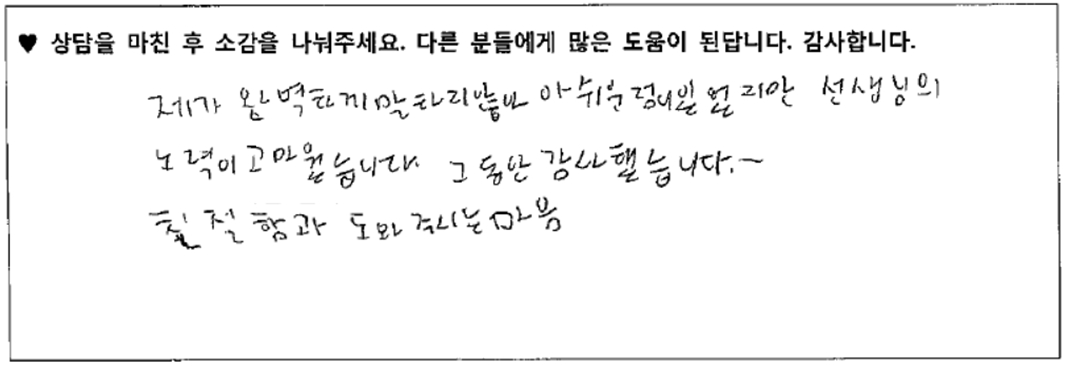 ♥ 상담을 마친 후 소감을 나눠주세요. 다른 분들에게 많은 도움이 된답니다. 감사합니다.
제가 완벽하게 말하지 않 아쉬운 선생님의
노력이 고마웠습니다 그동안 감사했습니다.~
친절함과 도와주시는 마음